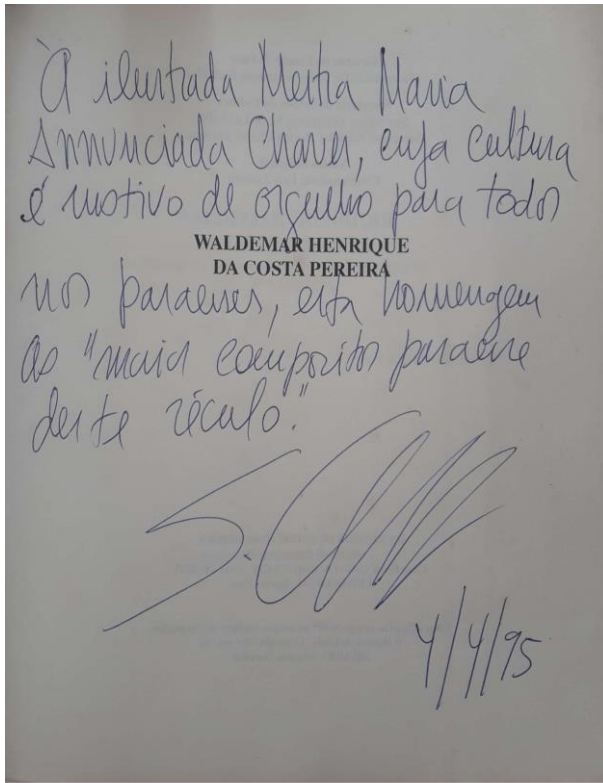 À ilustrada Mestra Maria
Annunciada Chaves, cuja cultura
é motivo de orgulho para todos
WALDEMAR HENRIQUE
DA COSTA PEREIRA
nós paraenses, esta homenagem
ao "maior compositor paraense
deste século."
4/4/95